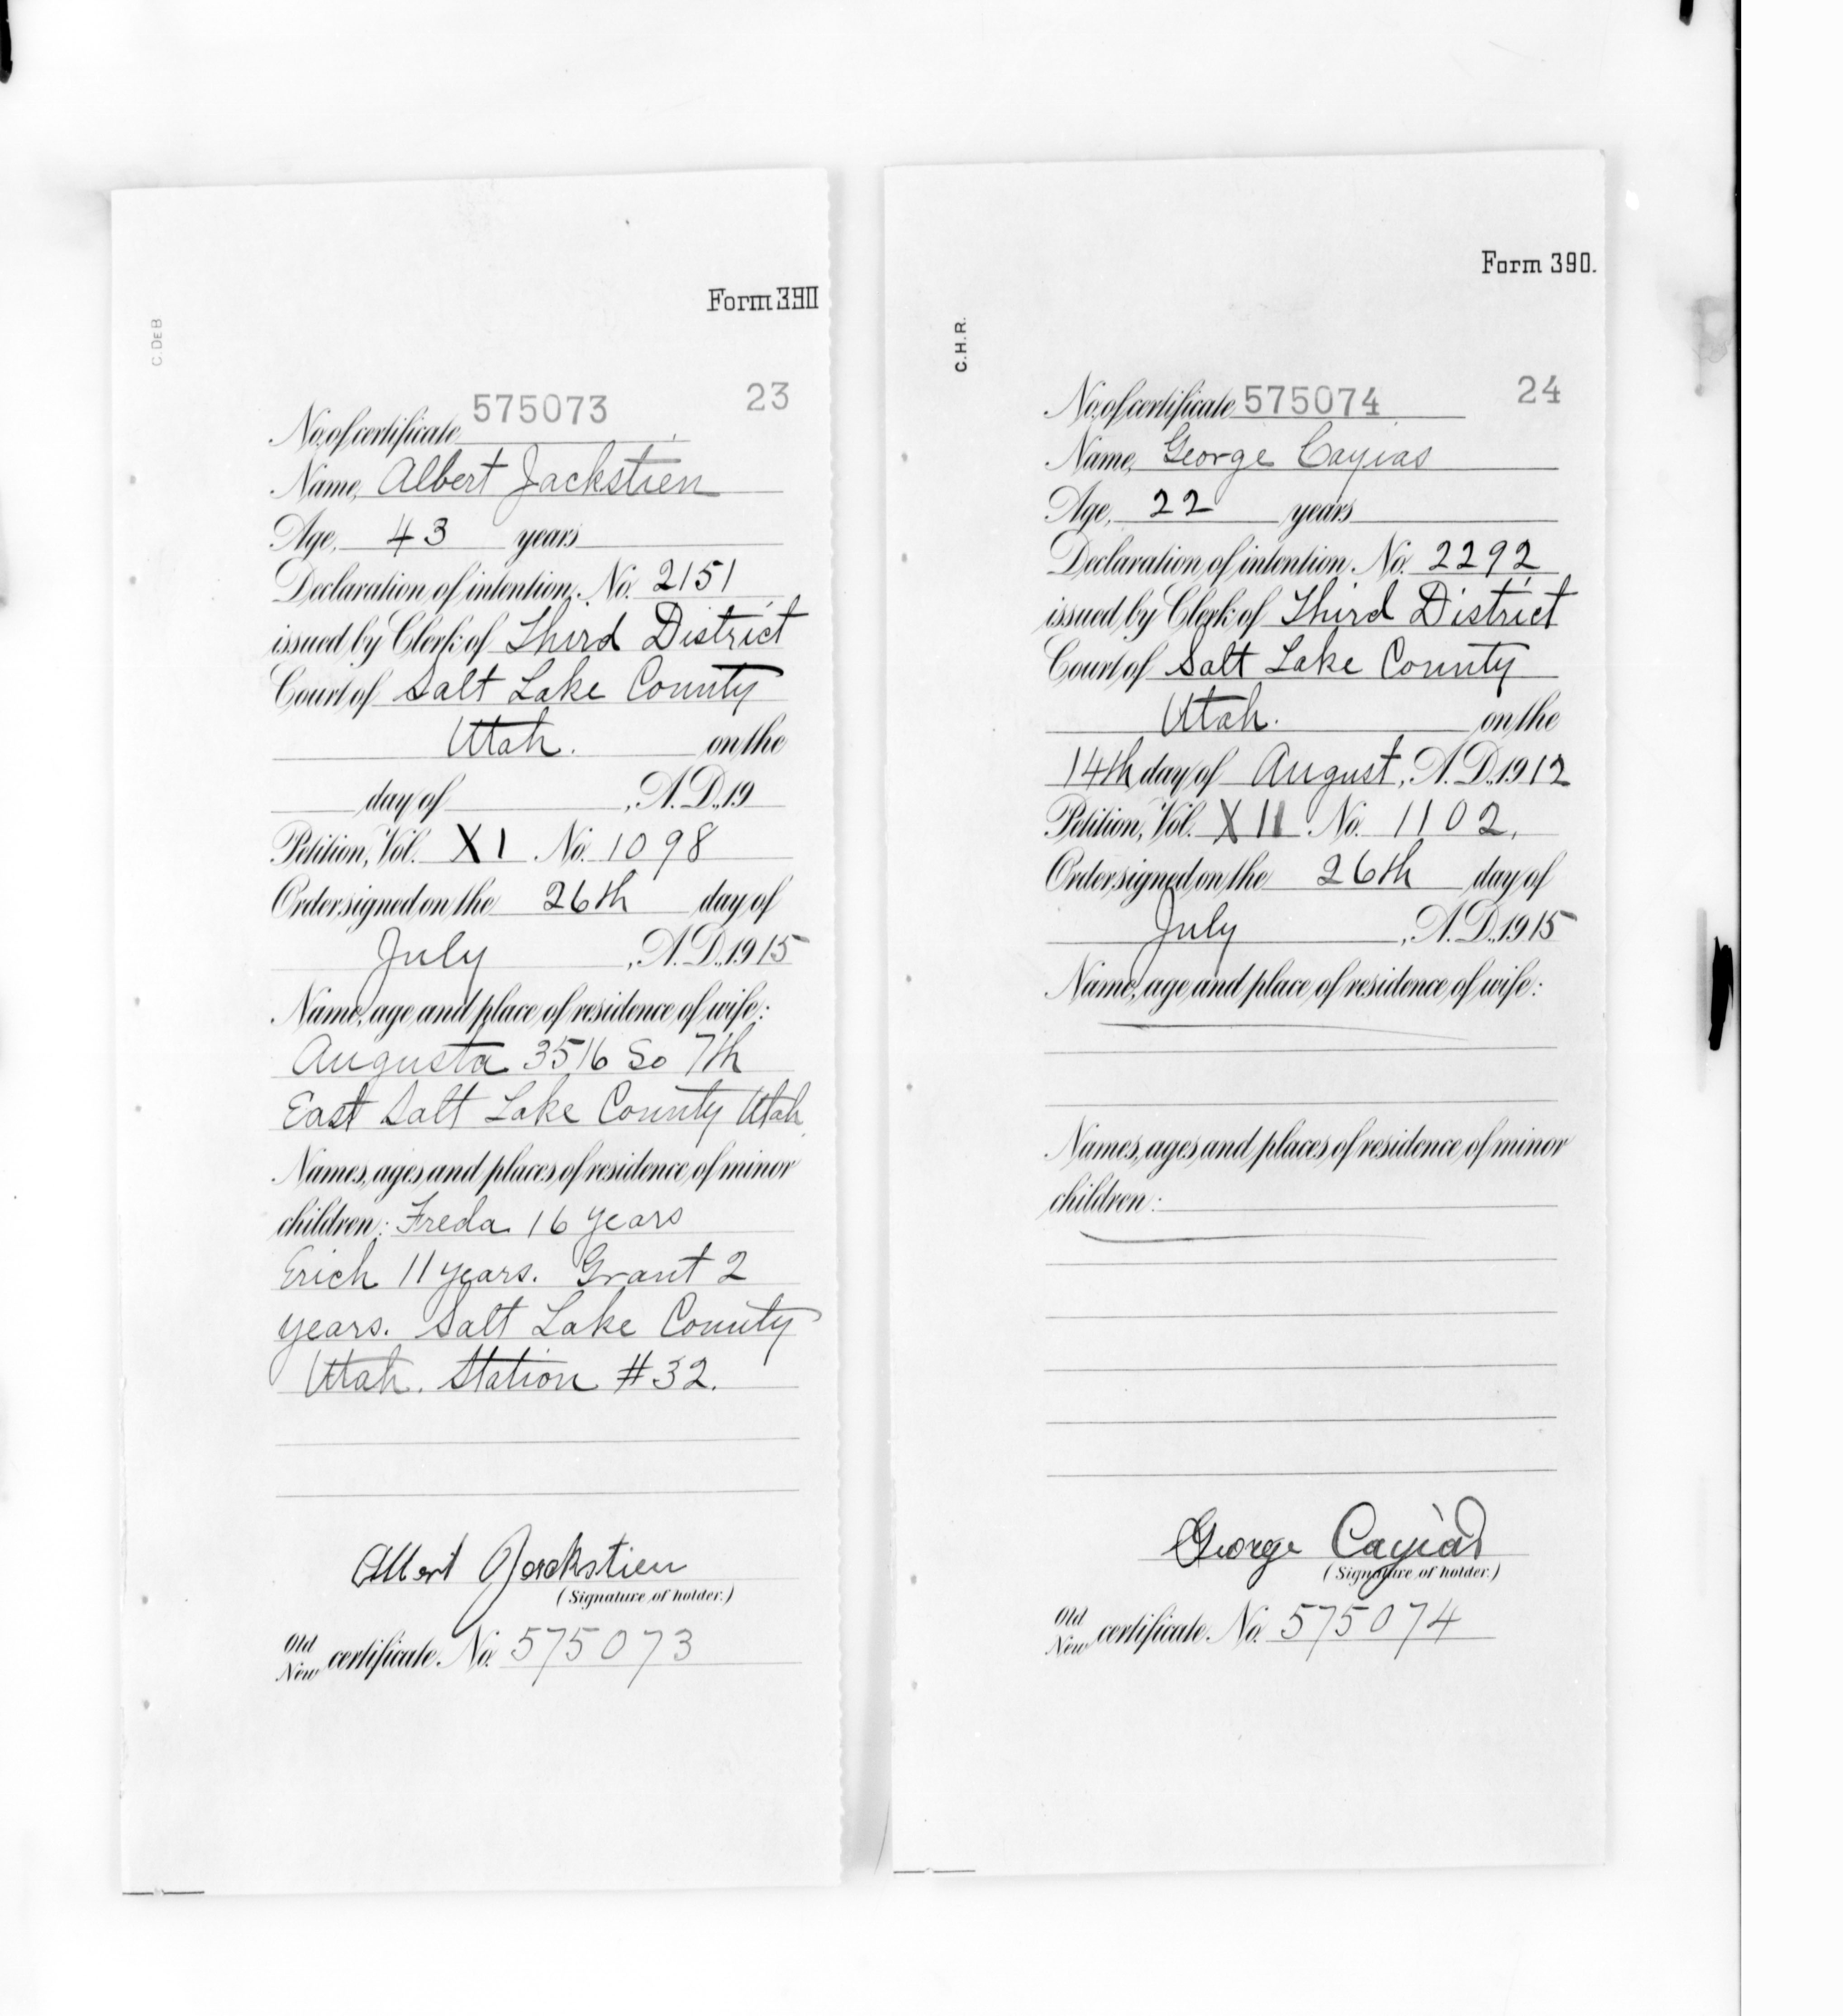 Form 390
C. DEB
23
No. of certificate 575073
Name, Albert Jackstien
Age, 43 years
Declaration of intention, No. 2151
issued by Clerk of Third District
Court of Salt Lake County
Utah. on the
day of , A. D., 19
Petition, Vol. XI No. 1098
Order signed on the 26th day of
July , A. D., 1915
Name, age and place of residence of wife:
Augusta 3516 So 7th
East Salt Lake County Utah
Names, ages and places of residence of minor
children: Freda 16 years
Erich 11 years. Grant 2
years. Salt Lake County
Utah. Station #32.
Albert Jackstien
(Signature of holder.)
Old
New certificate No. 575073
Form 390.
C.H.R.
24
No. of certificate 575074
Name, George Cayias
Age, 22 years
Declaration of intention, No. 2292
issued by Clerk of Third District
Court of Salt Lake County
Utah. on the
14th day of August, A. D., 1912
Petition, Vol. XII No. 1102.
Order signed on the 26th day of
July , A. D., 1915
Name, age and place of residence of wife:
Names, ages and places of residence of minor
children:
George Cayias
(Signature of holder.)
Old
New certificate No. 575074